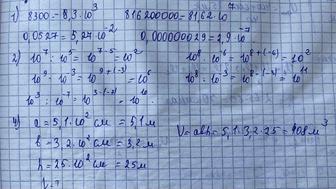 1) 8300 = 8,3·10³ 816200000 = 8162·10
0,0527 = 5,27·10⁻² 0,000000029 = 2,9·10⁻⁷
2) 10⁷ : 10⁵ = 10⁷⁻⁵ = 10² 10⁸ · 10⁻⁶ = 10⁸⁺⁽⁻⁶⁾ = 10²
10⁹ · 10⁻³ = 10⁹⁺⁽⁻³⁾ = 10⁶ 10⁸ : 10⁻³ = 10⁸⁻⁽⁻³⁾ = 10¹¹
10³ : 10⁻⁷ = 10³⁻⁽⁻⁷⁾ = 10¹⁰
4) a = 5,1·10² см = 5,1м V = abh = 5,1·3,2·25 = 408м³
b = 3,2·10² см = 3,2м
h = 25·10² см = 25м